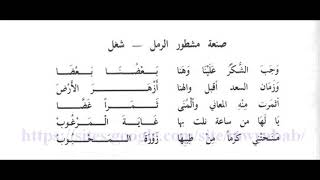 صنعة مشطور الرمل – شغل
وَجَبَ الشُّكْرُ عَلَيْنَا وَهَنَا بَعْضُنَا بَعْضَا
وَزَمَان السعد أقبل والهنا أزْهَرَ الأَرْضَ
أثمرت مِنْهِ المعاني والْمُنَى ثَمَراً غَضَّا
يَا لَهَا من ساعة نلت بها غَايَةَ الْمَرْغُوبْ
مَنَحَتْنِي كَرَماً مِنْ طِيبَهَا زَوْرَةَ الْمَحْبُوبْ
https://sites.google.com/site/